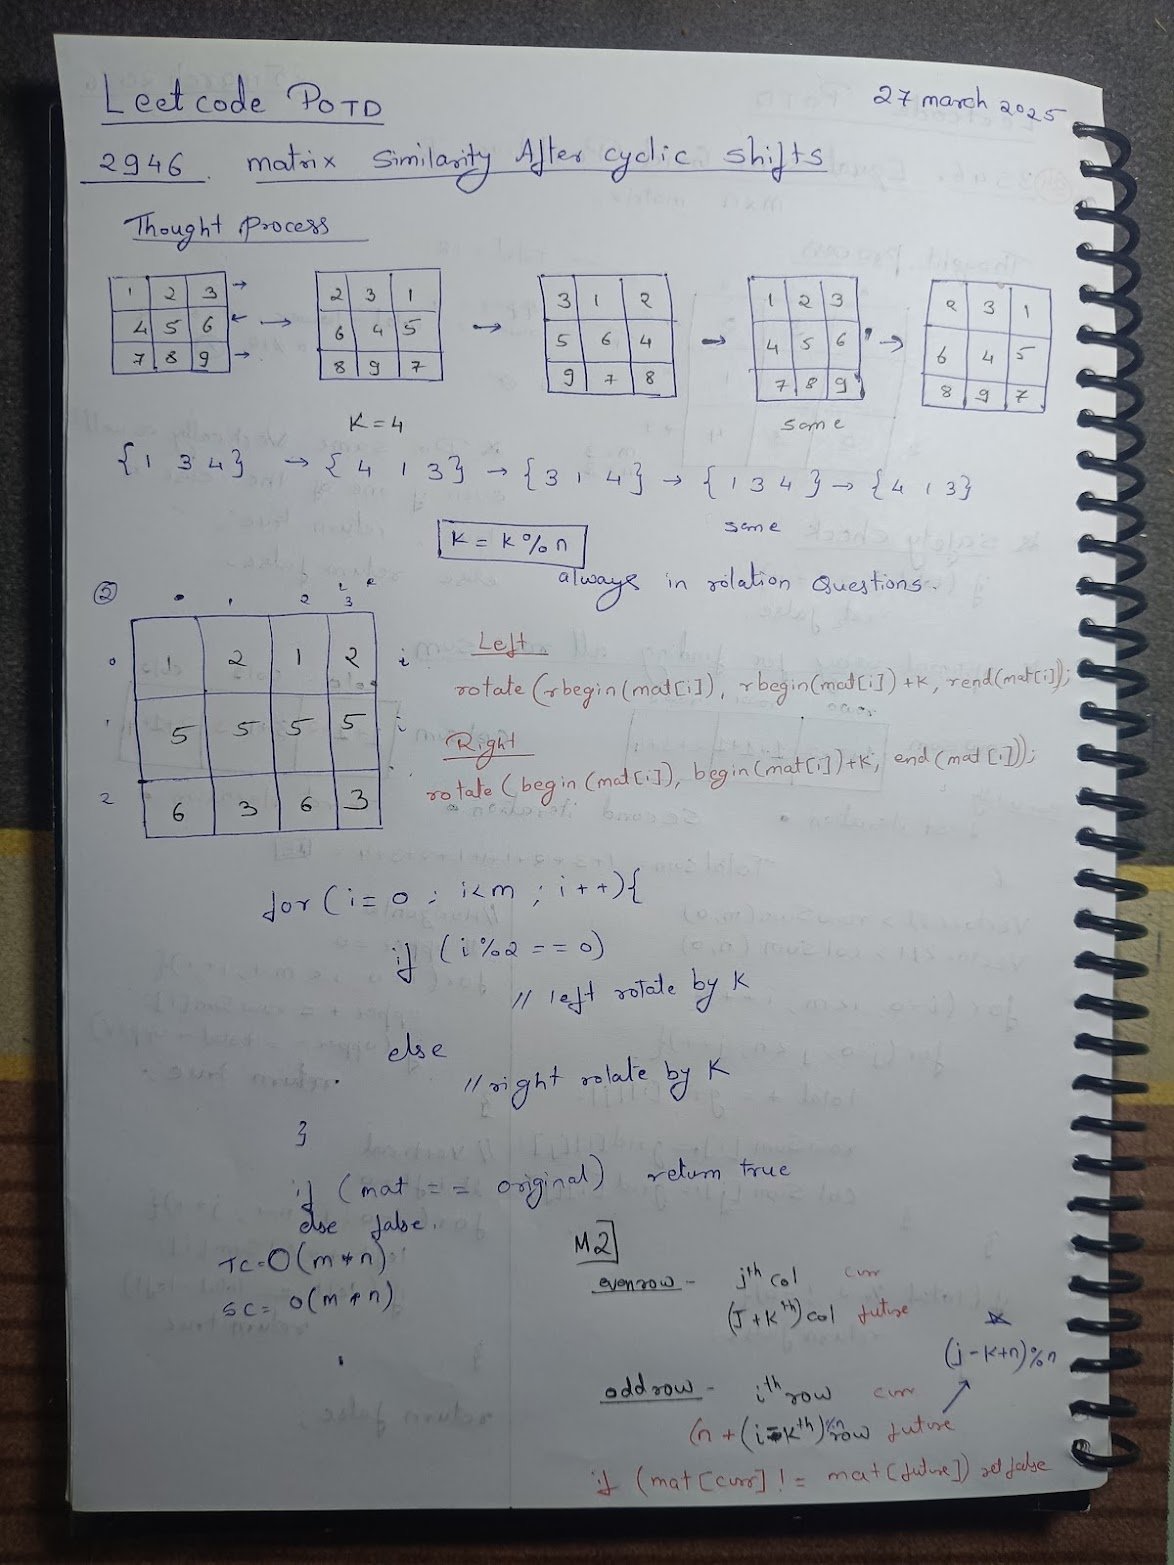 Leetcode POTD
27 march 2025
2946. matrix Similarity After cyclic shifts
Thought process
1 2 3 → 2 3 1 3 1 2 1 2 3 2 3 1
4 5 6 ← → 6 4 5 → 5 6 4 → 4 5 6 → 6 4 5
7 8 9 → 8 9 7 9 7 8 7 8 9 8 9 7
K = 4
same
{1 3 4} → {4 1 3} → {3 1 4} → {1 3 4} → {4 1 3}
same
K = K%n
always in rotation Questions.
②
1 2 3
0 1 2 1 2 i
1 5 5 5 5 i
2 6 3 6 3
Left
rotate (rbegin(mat[i]), rbegin(mat[i])+K, rend(mat[i]);
Right
rotate (begin(mat[i]), begin(mat[i])+K, end(mat[i]));
for (i = 0 ; i<m ; i++){
if (i%2 == 0)
// left rotate by K
else
// right rotate by K
}
if (mat == original) return true
else false.
TC = O(m*n)
SC = O(m*n)
M2
even row - jth col curr
(J+Kth) col future
(j-K+n)%n
odd row - ith row curr
(n + (i-Kth)%n row future
if (mat[curr] != mat[future]) ret false